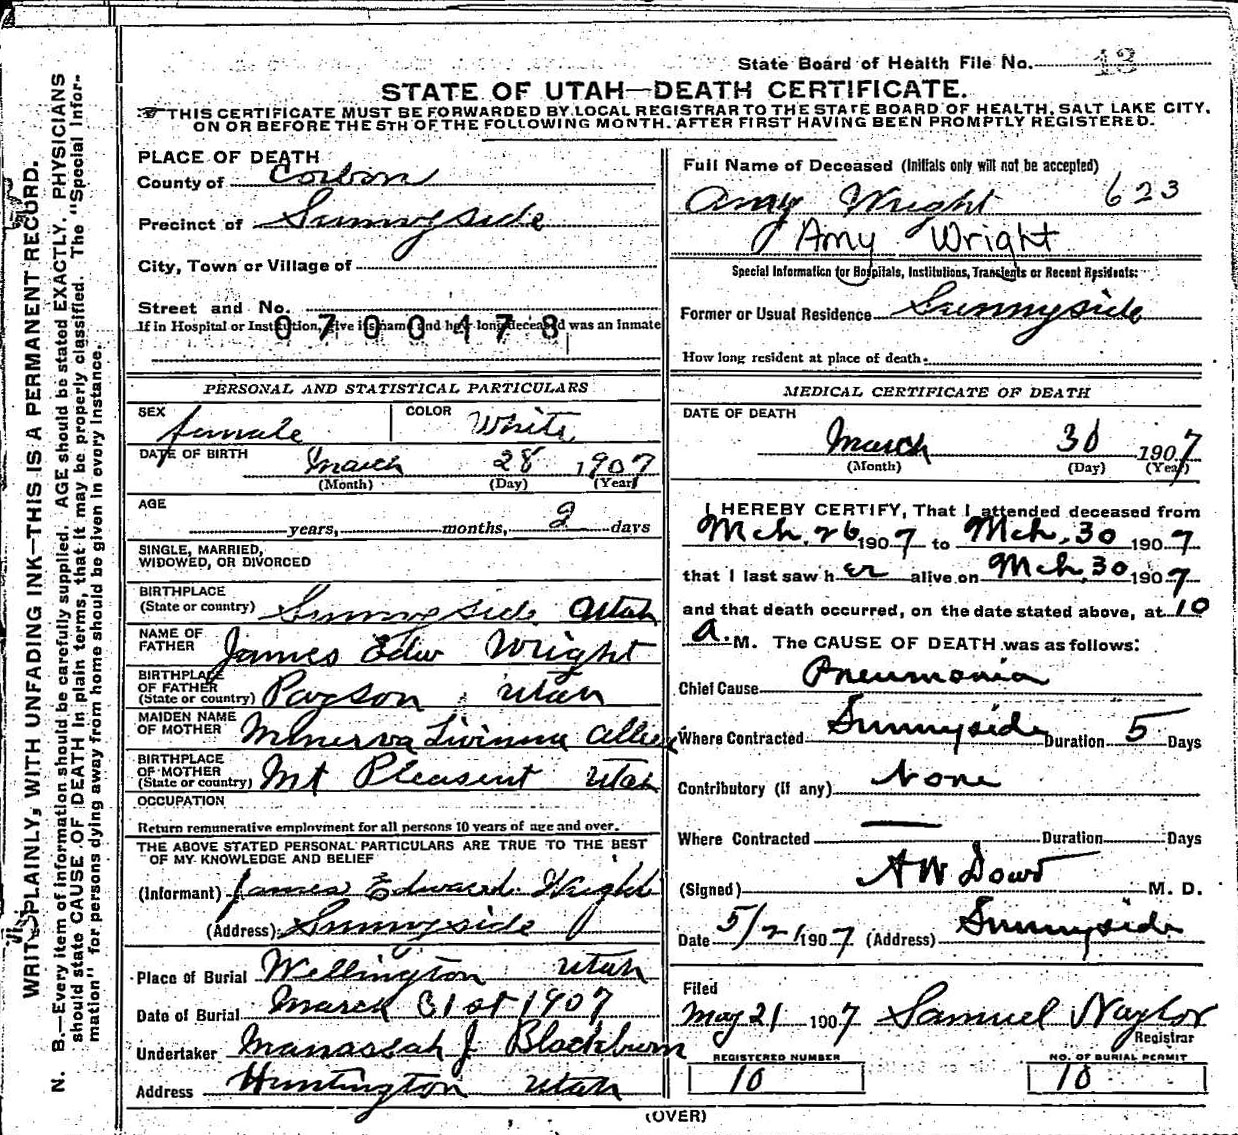 State Board of Health File No. 13
STATE OF UTAH—DEATH CERTIFICATE.
THIS CERTIFICATE MUST BE FORWARDED BY LOCAL REGISTRAR TO THE STATE BOARD OF HEALTH, SALT LAKE CITY,
ON OR BEFORE THE 5TH OF THE FOLLOWING MONTH, AFTER FIRST HAVING BEEN PROMPTLY REGISTERED.
WRITE PLAINLY, WITH UNFADING INK—THIS IS A PERMANENT RECORD.
N. B.—Every item of information should be carefully supplied. AGE should be stated EXACTLY. PHYSICIANS
should state CAUSE OF DEATH in plain terms, that it may be properly classified. The "Special Infor-
mation" for persons dying away from home should be given in every instance.
PLACE OF DEATH
County of Carbon
Precinct of Sunnyside
City, Town or Village of
Street and No.
If in Hospital or Institution, give its name and how long deceased was an inmate
0700478
PERSONAL AND STATISTICAL PARTICULARS
SEX female COLOR White
DATE OF BIRTH March 28 1907
(Month) (Day) (Year)
AGE
years, months, 2 days
SINGLE, MARRIED,
WIDOWED, OR DIVORCED
BIRTHPLACE
(State or country) Sunnyside Utah
NAME OF
FATHER James Edw Wright
BIRTHPLACE
OF FATHER
(State or country) Payson, Utah
MAIDEN NAME
OF MOTHER Minerva Allred
BIRTHPLACE
OF MOTHER
(State or country) Mt Pleasent Utah
OCCUPATION
Return remunerative employment for all persons 10 years of age and over.
THE ABOVE STATED PERSONAL PARTICULARS ARE TRUE TO THE BEST
OF MY KNOWLEDGE AND BELIEF
(Informant) James Edward Wright
(Address) Sunnyside
Place of Burial Wellington Utah
Date of Burial March 31st 1907
Undertaker Manassah J Blackburn
Address Huntington Utah
Full Name of Deceased (Initials only will not be accepted)
Amy Wright 623
Amy Wright
Special Information for Hospitals, Institutions, Transients or Recent Residents:
Former or Usual Residence Sunnyside
How long resident at place of death.
MEDICAL CERTIFICATE OF DEATH
DATE OF DEATH
March 30 1907
(Month) (Day) (Year)
I HEREBY CERTIFY, That I attended deceased from
Mch. 26 1907 to Mch. 30 1907
that I last saw her alive on Mch, 30 1907
and that death occurred, on the date stated above, at 10
a. M. The CAUSE OF DEATH was as follows:
Chief Cause Pneumonia
Where Contracted Sunnyside Duration 5 Days
Contributory (if any) None
Where Contracted — Duration Days
(Signed) A W Dowd M. D.
Date 5/21 1907 (Address) Sunnyside
Filed
May 21 1907 Samuel Naylor
Registrar
REGISTERED NUMBER
10
NO. OF BURIAL PERMIT
10
(OVER)